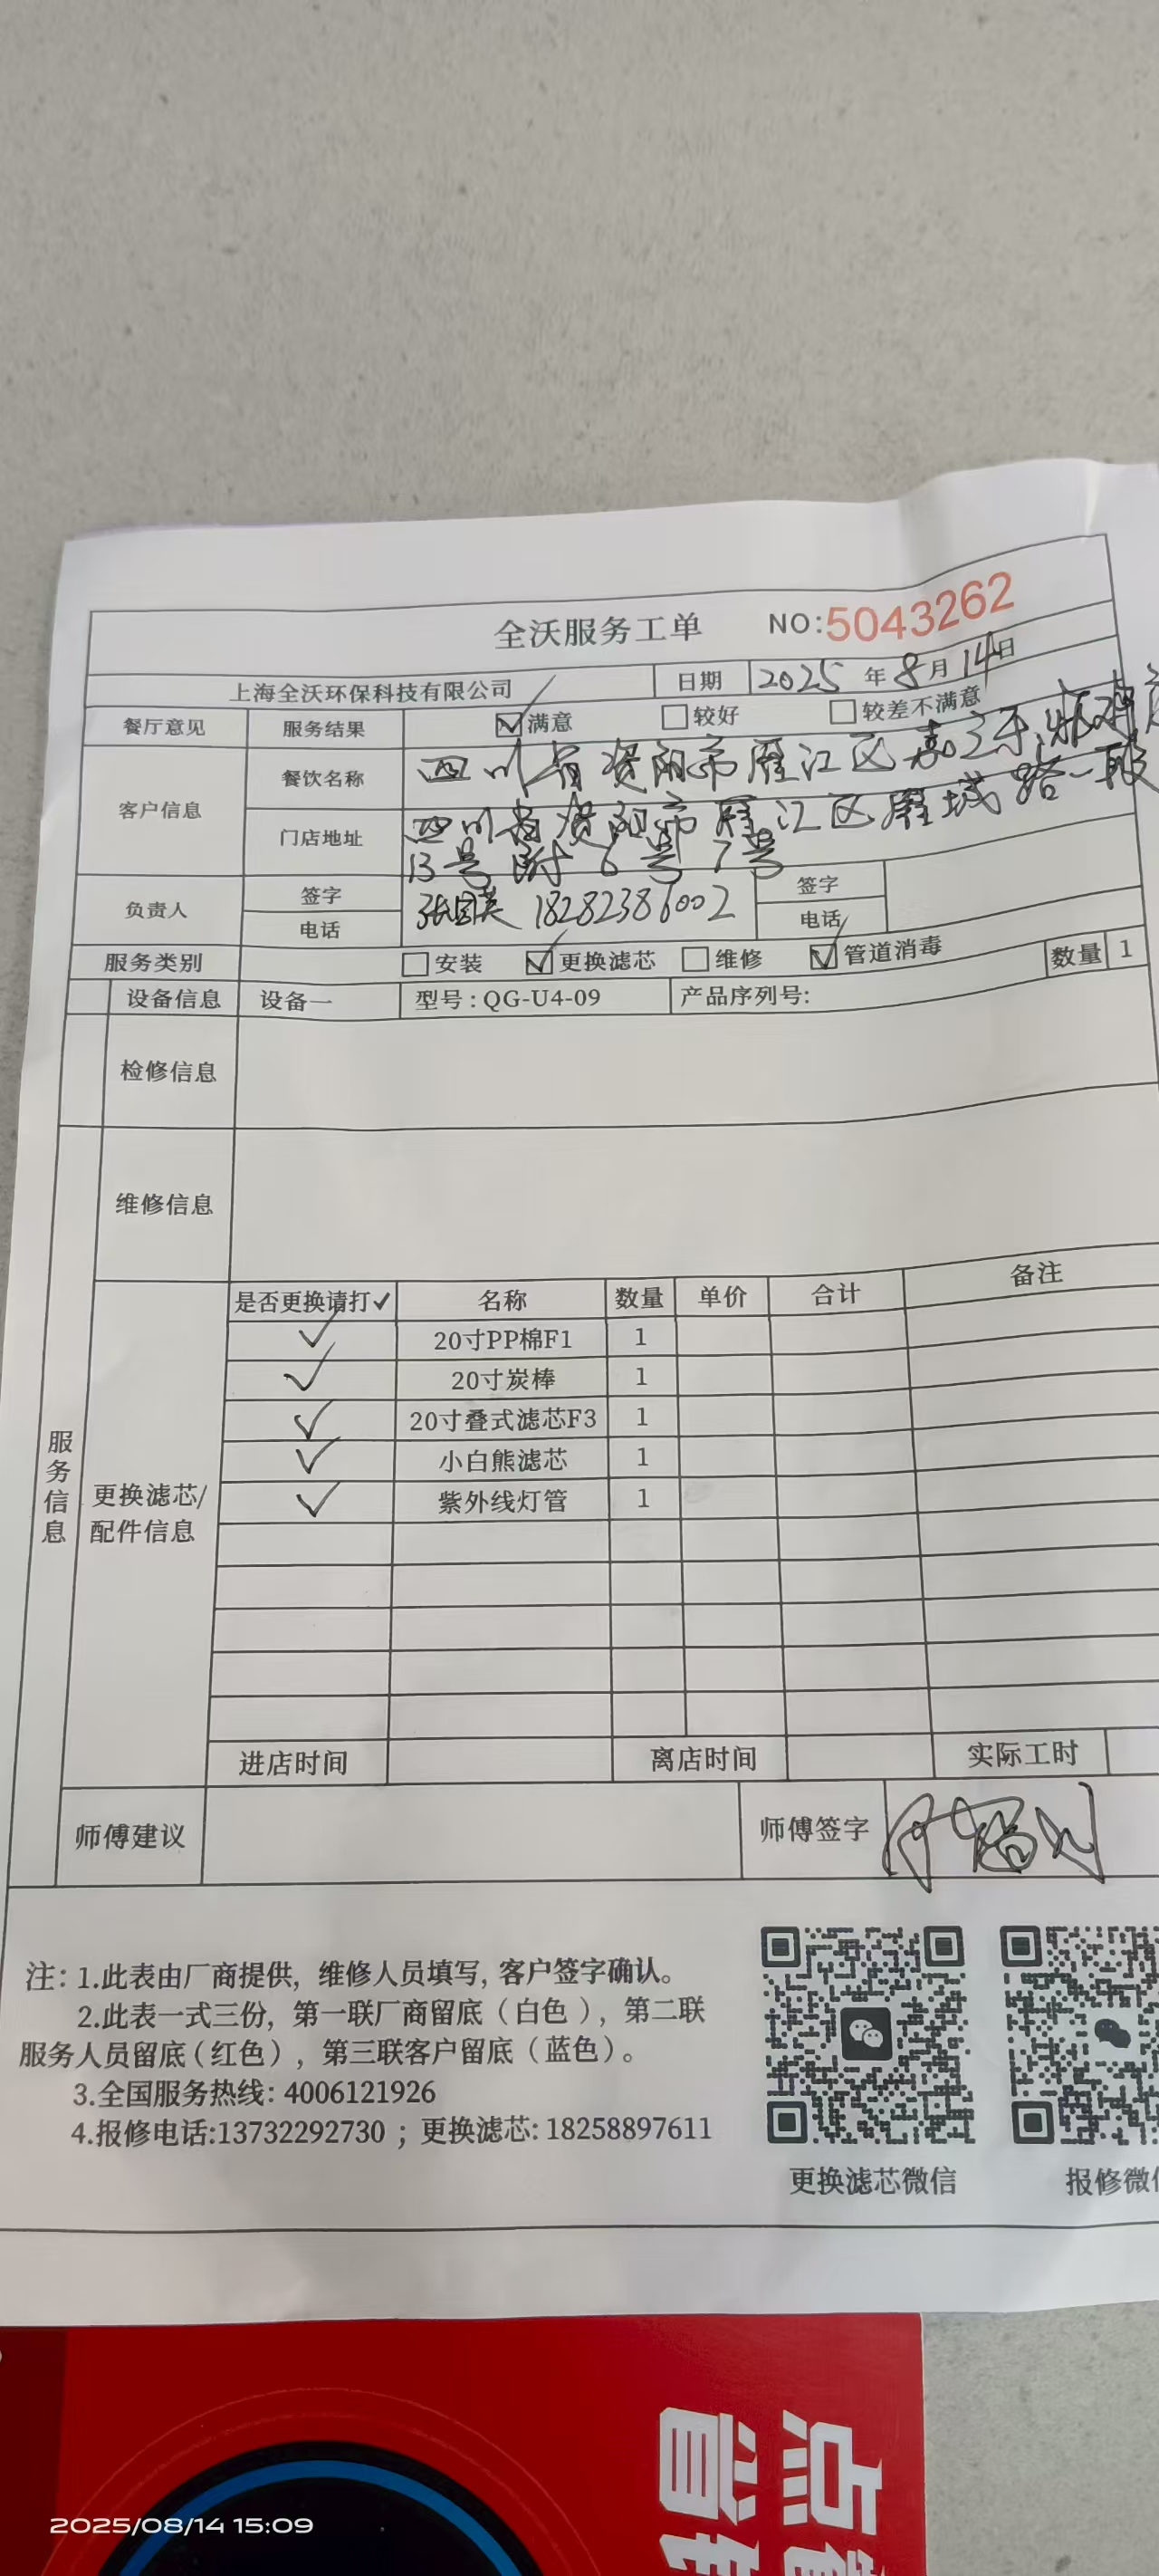 全沃服务工单 NO:5043262
上海全沃环保科技有限公司 日期 2025 年 8 月 14 日
餐厅意见 服务结果 满意 较好 较差不满意
客户信息
餐饮名称 四川省资阳市雁江区嘉
门店地址 四川省资阳市雁江区雁城路一段
13号附6号7号
负责人 签字 电话 张国英 18282386002 签字 电话
服务类别 安装 更换滤芯 维修 管道消毒 数量 1
设备信息 设备一 型号:QG-U4-09 产品序列号:
检修信息
维修信息
服务信息
更换滤芯/
配件信息
是否更换请打✓ 名称 数量 单价 合计 备注
✓ 20寸PP棉F1 1
✓ 20寸炭棒 1
✓ 20寸叠式滤芯F3 1
✓ 小白熊滤芯 1
✓ 紫外线灯管 1
进店时间 离店时间 实际工时
师傅建议 师傅签字
注: 1.此表由厂商提供, 维修人员填写, 客户签字确认。
2.此表一式三份, 第一联厂商留底(白色), 第二联
服务人员留底(红色), 第三联客户留底(蓝色)。
3.全国服务热线: 4006121926
4.报修电话:13732292730 ; 更换滤芯: 18258897611
更换滤芯微信 报修微信
点
省
2025/08/14 15:09